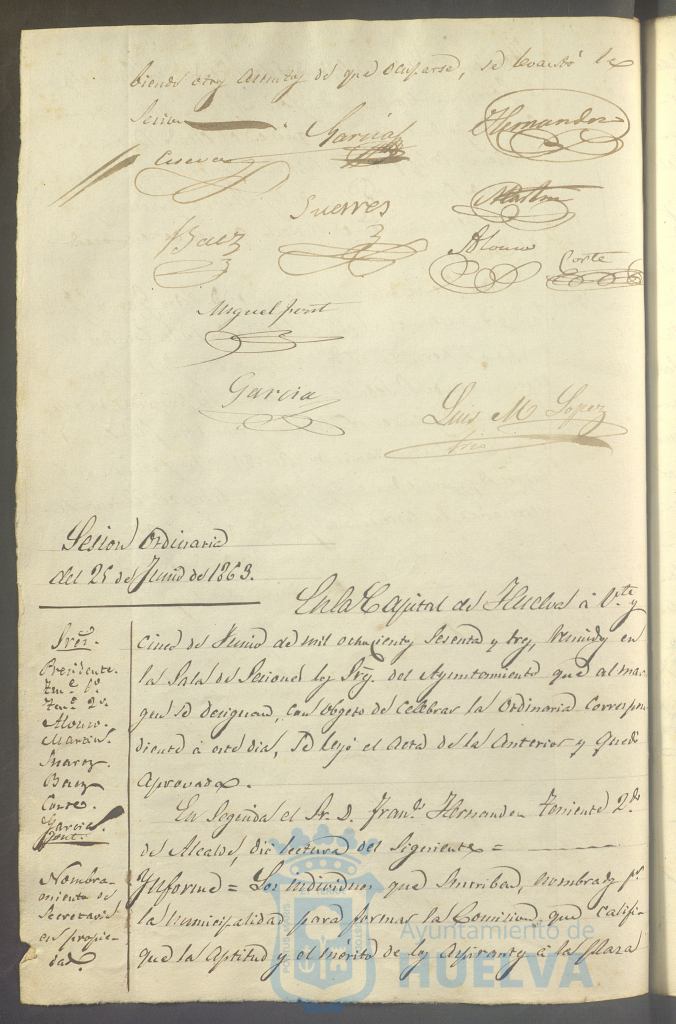 biendo otros asuntos de que ocuparse, se levantó la
Sesion
Garcia
Hernandez
Cesena
Martin
Suerres
Baez
Alonso
Corte
Miguel font
Garcia
Luis M Lopez
Srio
Sesion Ordinaria
del 25 de Junio de 1863.
En la Capital de Huelva á Vte. y
cinco de Junio de mil ochocientos sesenta y tres, reunidos en
la Sala de Sesiones los Sres. del Ayuntamiento que al mar
gen se designan, con obgeto de celebrar la Ordinaria correspon
diente á este dia, se leyó el acta de la anterior y quedó
aprovada.
En seguida el Sr. D. Franco. Hernandez Teniente 2o.
de Alcalde, dió lectura del siguiente =
Informe = Los individuos que suscriben, nombrados pr.
la municipalidad para formar la Comision que califi-
que la aptitud y el mérito de los aspirantes á la plaza
Sres.
Presidente.
Tene. 1o.
Tene. 2o.
Alonso.
Martin.
Suarez.
Baez.
Cortes.
Garcia.
Font.
Nombra-
miento de
Secretario
en propie-
dad.
Ayuntamiento de
HUELVA